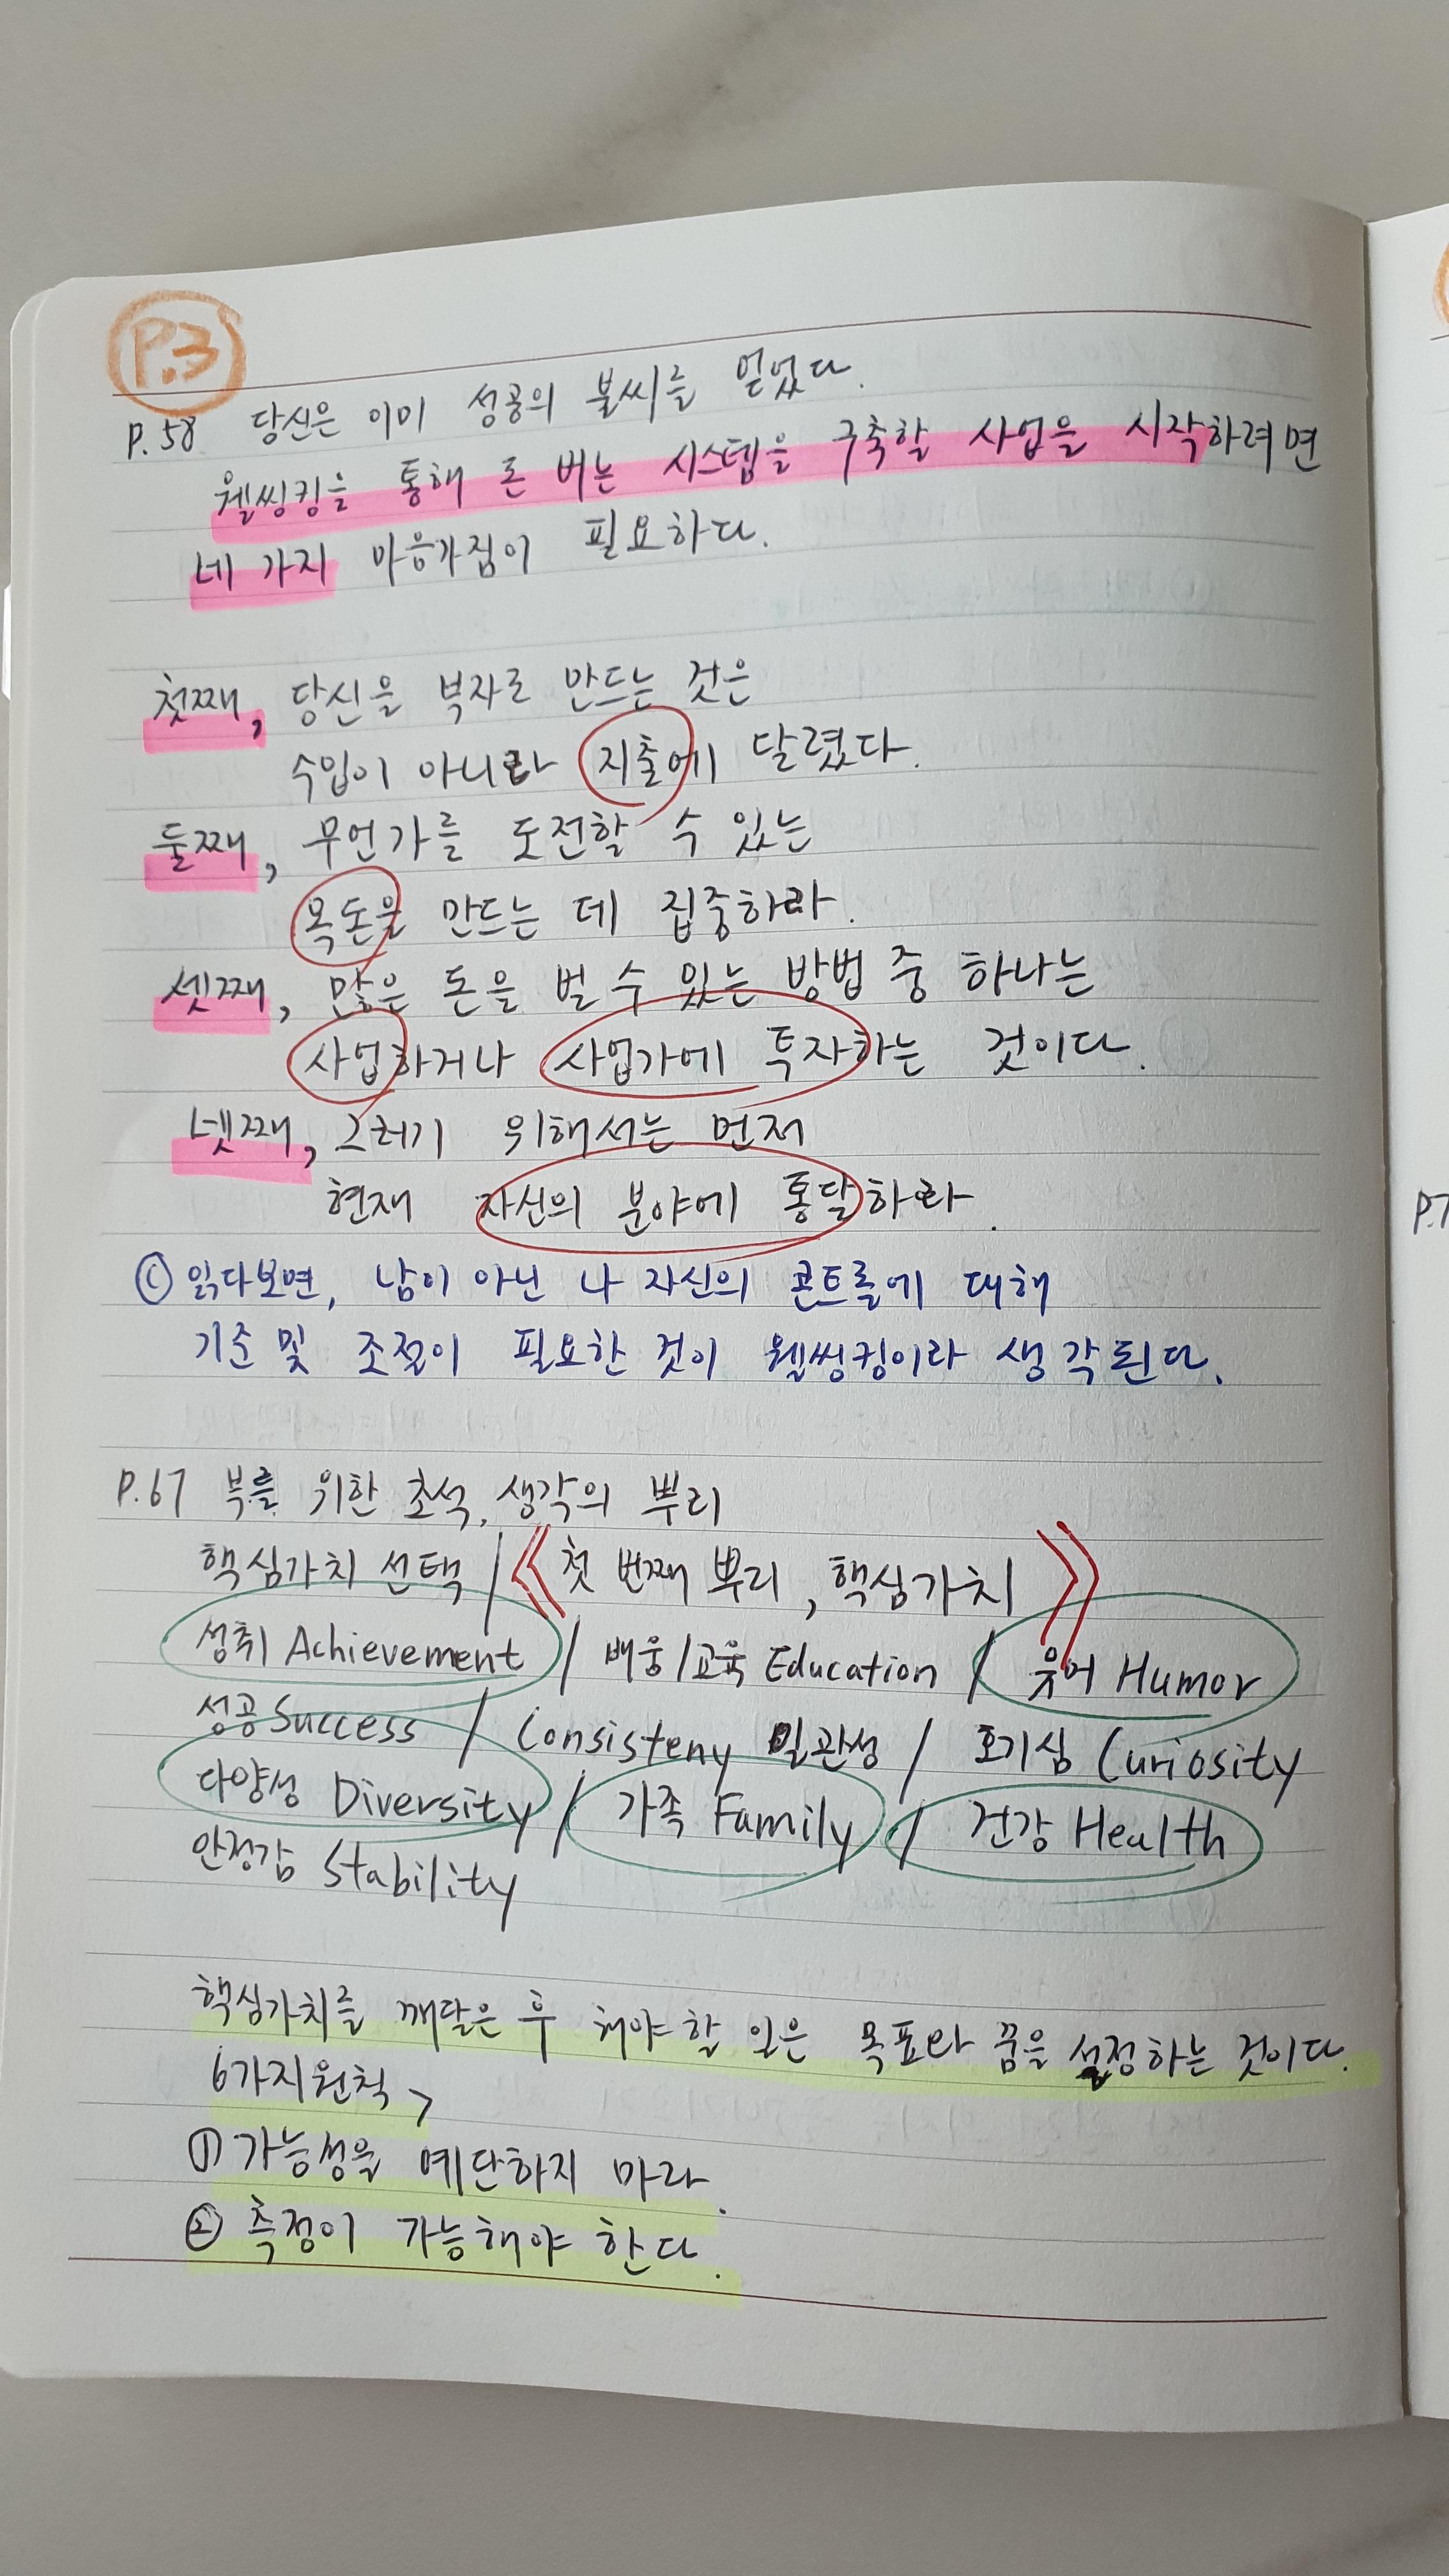 P.3
P.58 당신은 이미 성공의 불씨를 얻었다.
웰씽킹을 통해 돈 버는 시스템을 구축할 사업을 시작하려면
네 가지 마음가짐이 필요하다.
첫째, 당신을 부자로 만드는 것은
수입이 아니라 지출에 달렸다.
둘째, 무언가를 도전할 수 있는
목돈을 만드는 데 집중하라.
셋째, 많은 돈을 벌 수 있는 방법 중 하나는
사업하거나 사업가에 투자하는 것이다.
넷째, 그러기 위해서는 먼저
현재 자신의 분야에 통달하라.
ⓒ 읽다보면, 남이 아닌 나 자신의 콘트롤에 대해
기준 및 조절이 필요한 것이 웰씽킹이라 생각된다.
P.67 부를 위한 초석, 생각의 뿌리
핵심가치 선택 / 《첫 번째 뿌리, 핵심가치》
성취 Achievement / 배움/교육 Education / 유머 Humor
성공 Success / Consisteny 일관성 / 호기심 Curiosity
다양성 Diversity / 가족 Family / 건강 Health
안정감 Stability
핵심가치를 깨달은 후 해야 할 일은 목표와 꿈을 설정하는 것이다.
6가지 원칙 >
① 가능성을 예단하지 마라.
② 측정이 가능해야 한다.
P.7